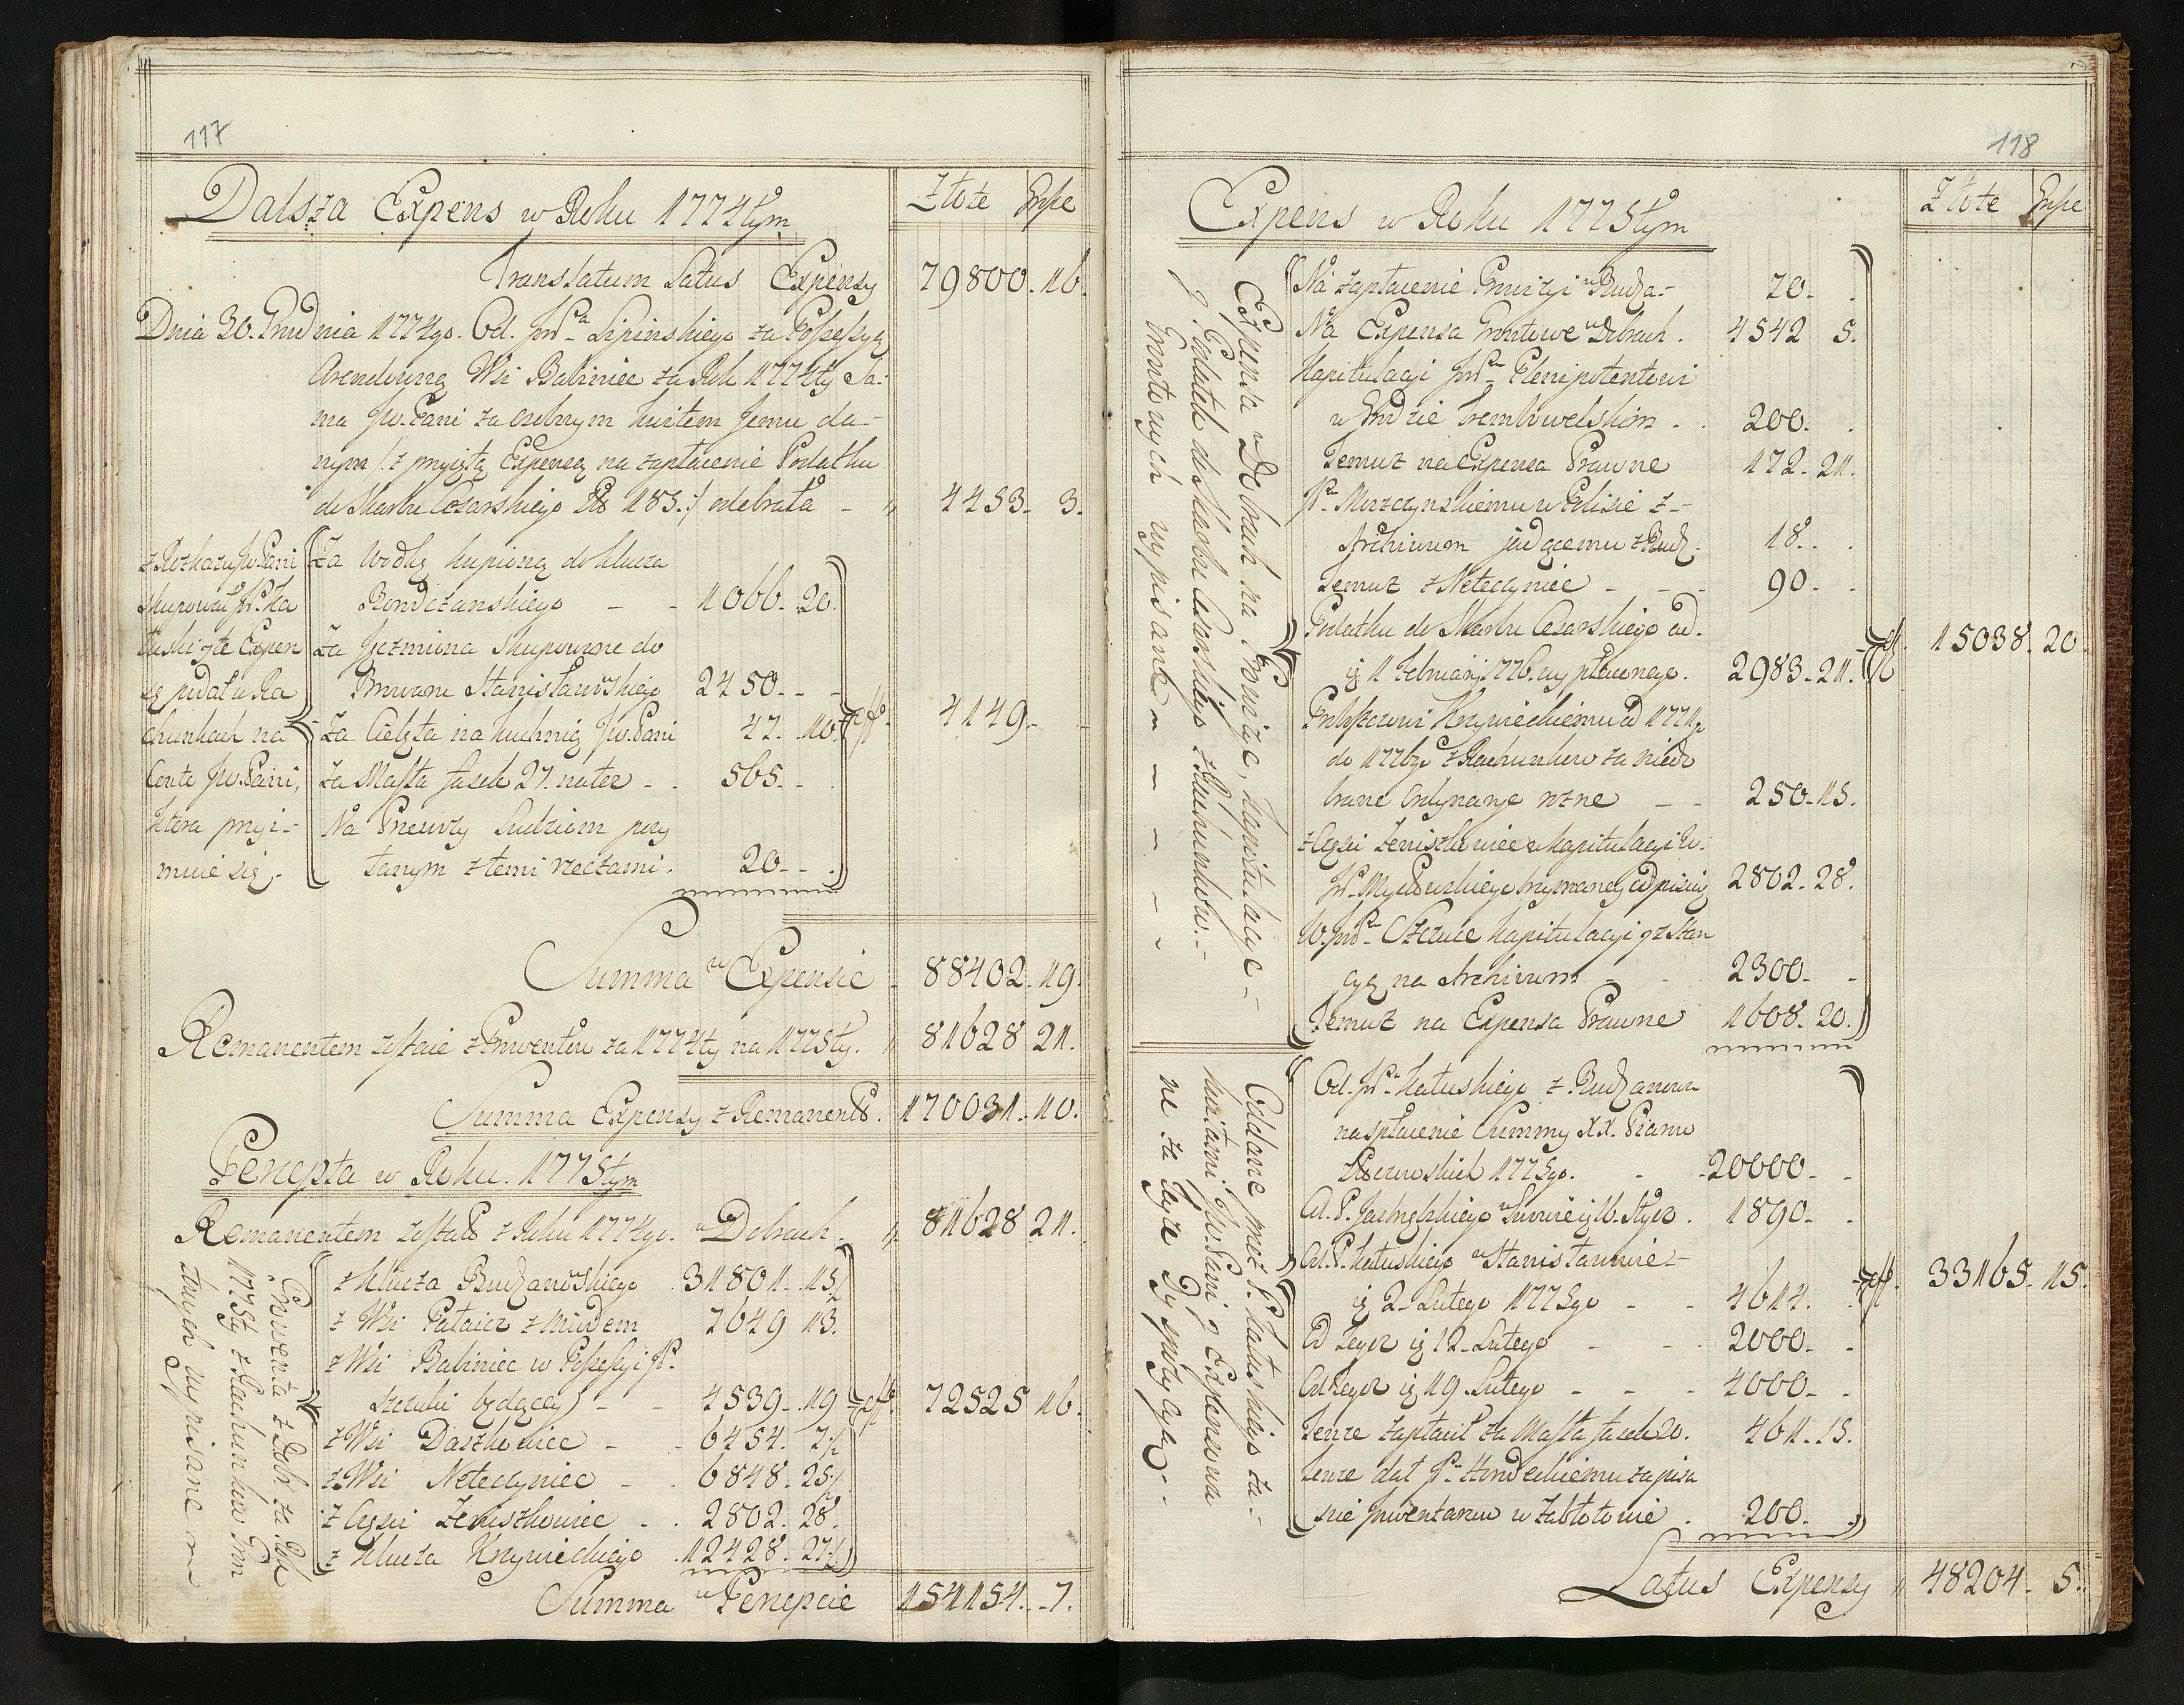 117
Dalsza Expens w Roku 1774tym
Złote Grosze
Translatum Latus Expensy 79800. 16.
Dnia 30. Grudnia 1774go. Od. JmP. Lipinskiego za Possessyą
Arendowną Wsi Babiniec za Rok 1774ty Sa-
ma Jw. Pani za osobnym kwitem Jemu da-
nym /: z przyiętą Expensą na zapłacenie Podatku
do Skarbu Cesarskiego 183. :/ odebrała - " 4453. 3.
z Rozkazu Jw. Pani
skupował P. Ka
tuski y te Expen
są podał w Ra
chunkach na
Conto Jw. Pani,
ktora przyi-
muie się.
Za Wodkę kupioną do klucza
Budzanskiego - - 1066. 20.
Za Jęczmiona skupowane do
Browaru Stanisławskiego 2450. - -
Za Cielęta na kuchnię Jw. Pani 47. 10.
Za Masła fasek 27. - 565. -
Na Przewozy Ludziom
tanym z temi rzeczami. 20. - .
4149. -
Summa w Expensie - 88402. 19.
Remanentem zostaie z Prowentu za 1774ty na 1775ty. " 81628 21.
Summa Expensy z Remanent. 170031. 10.
Percepta w Roku. 1775tym
Remanentem został z Roku 1774go. w Dobrach. " 81628 21.
Prowenta z Dobr za Rok
1775ty z Rachunkow Grun
towych wypisane
z Klucza Budzanowskiego 31801. 15/
z Wsi Pataicz z Miodem 7649 13.
z Wsi Babiniec w Possessyi P.
będącey - - 4539. 19
z Wsi Daszkowiec - - 6454. 7/
z Wsi Neteczyniec - . 6848. 25/
z Części Zeniszkowiec . . 2802. 28.
z Klucza Krzyweckiego . 12428. 27/
72525 16.
Summa w Percepcie 154154. 7.
118
Expens w Roku 1775tym
Złote Grosze
Expensa w Dobrach na Prowizye, Kapitulacye -
y Podatek do Skarbu Cesarskiego z Rachunkow. -
Gruntowych wypisane
Na zapłacenie Prowizyi w Budza- 70. .
Na Expensa Gruntowe w Dobrach . 4542 5.
Kapitulacyi JmP. Plenipotentowi
w Grodzie Trembowelskim . . 200. .
Temuz na Expensa Prawne 172. 21.
P. Morzczynskiemu w Polisie z -
Archiwum jadącemu z Budz. 18. . .
Temuz z Neteczyniec - - - 90. -
Podatku do Skarbu Cesarskiego ad.
ig 1 Februarij 776. wypłaconego. 2983. 21.
Krzyweckiemu od 1774go
do 1776go z Rachunkow za niedo
brane Ordynarye rozne - - 250. 15.
z Części Zeniszkowiec w Kapitulacyi W.
P. trzymaney odpisuię 2802. 28.
W. JmP. Kapitulacyi y z Stan
cyą na Archivum - . 2300. -
Temuz na Expensa Prawne 1608. 20.
15038. 20.
Oddane przez P. Katuskiego za -
kwitami Jw. Pani y Expensowa
ne za Jeyze Dyspozycyą. -
Od. P. Katuskiego z Budzanowa
na spłacenie Summy XX. Piaru
1775go. - . 20000. -
Od. P. w Lwowie ig 16. Stycz . 1890. .
Od P. Katuskiego w Stanisławowie -
ig 2. Lutego 1775go - - 4614. .
Od Tegoz ig 12. Lutego - - . 2000. -
Od Tegoz ig 19. Lutego - - - 4000. - .
Tenze zapłacił za Masła fasek 20. 461. 15.
Tenze dał P. za pisa
nie Jnwentarzow w Zabłotowie . 200. .
33165. 15.
Latus Expensy " 48204. 5.